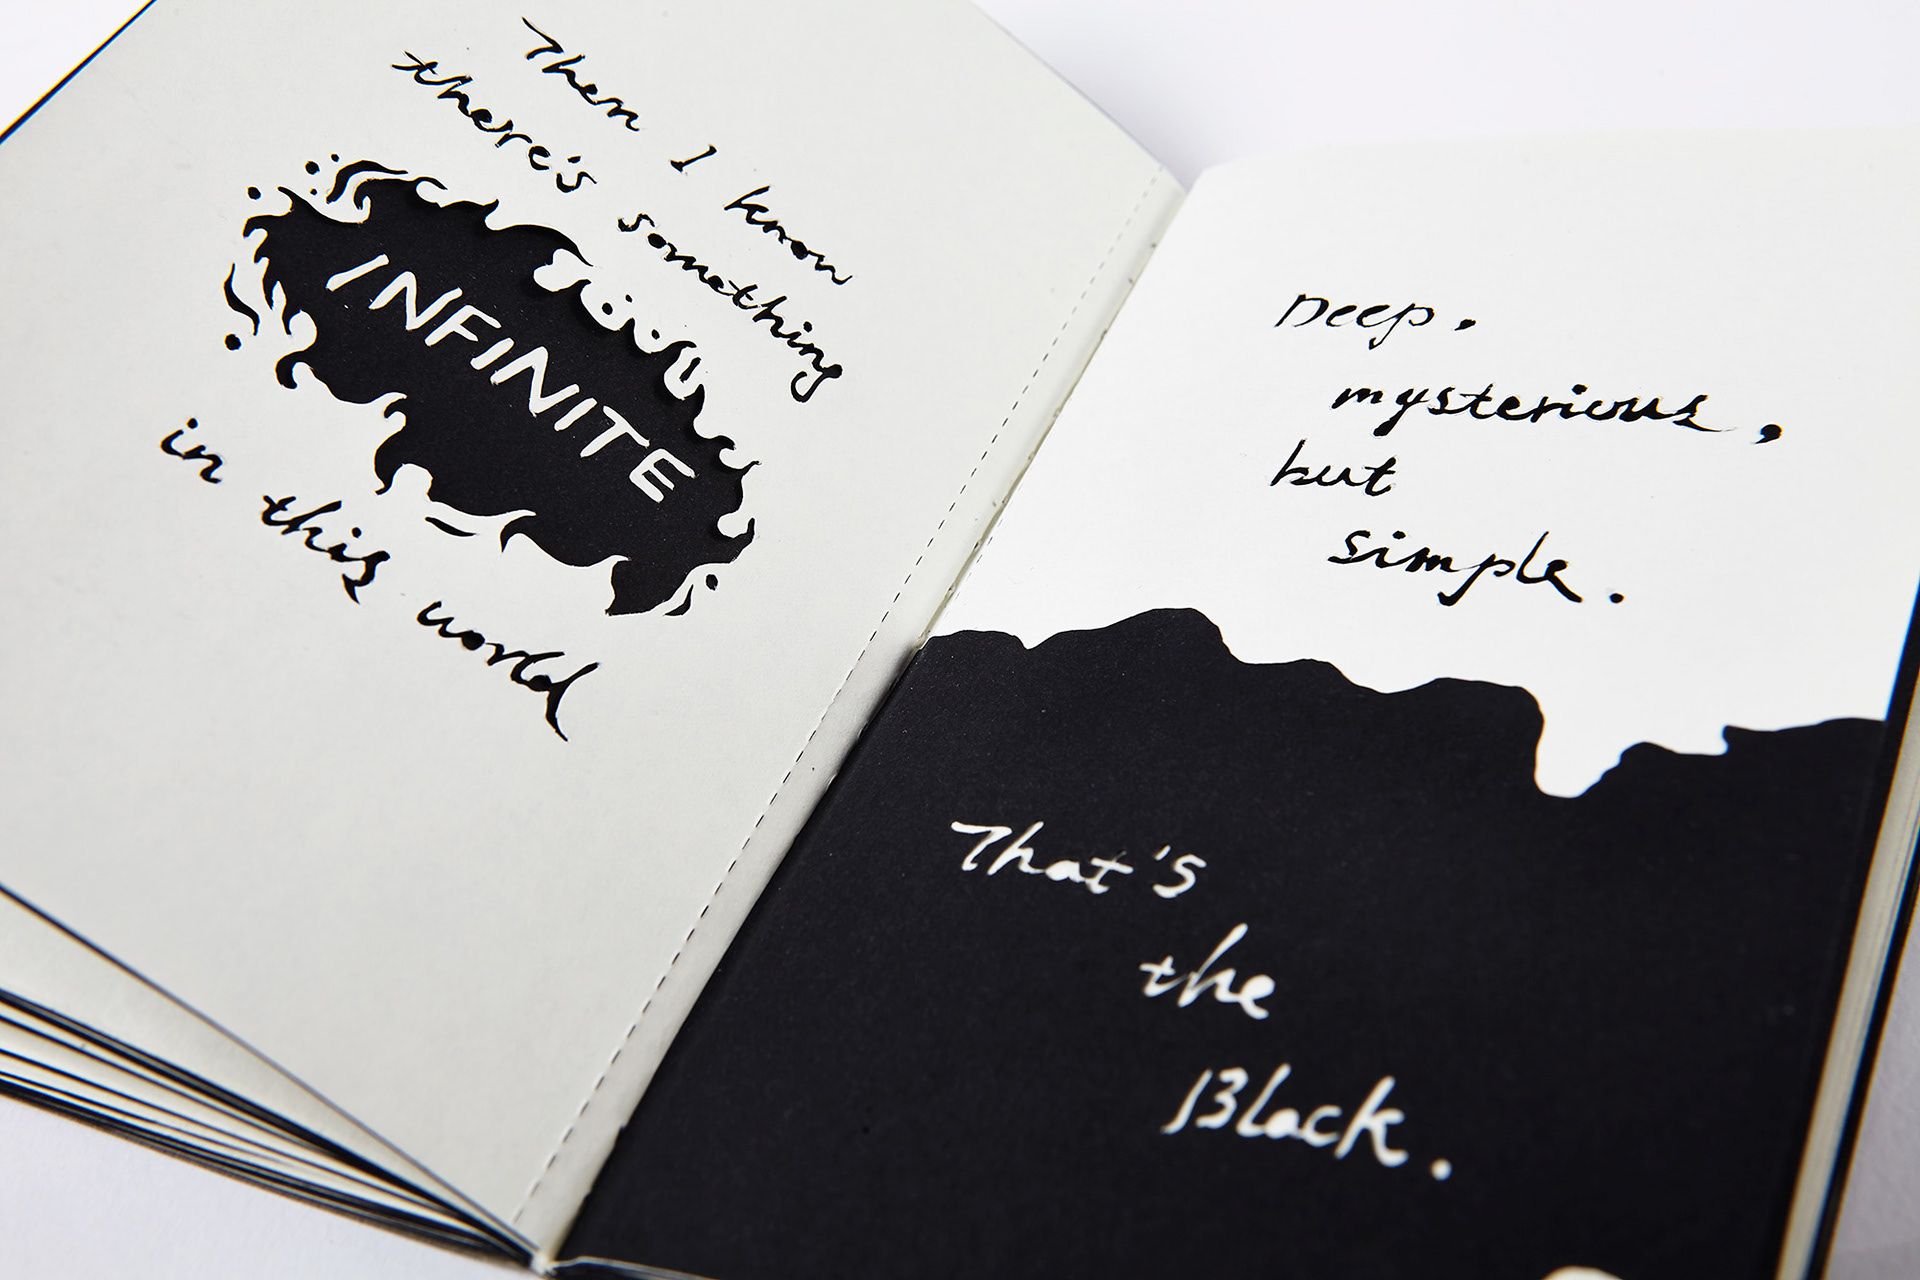 Then I know
there's something
INFINITE
in this world
Deep,
mysterious,
but
simple.
That's
the
Black.